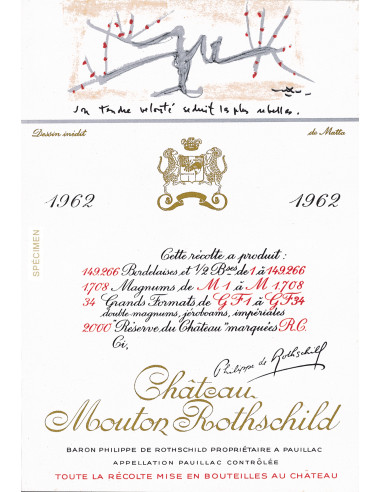 son tendre velouté séduit les plus rebelles.
Dessin inédit de Matta
1962 1962
SPÉCIMEN
Cette récolte a produit :
149.266 Bordelaises et 1/2 Bses de 1 à 149.266
1708 Magnums de M 1 à M 1.708
34 Grands Formats de GF1 à GF34
double-magnums, jéroboams, impériales
2000 "Réserve du Château" marquées R.C.
Ci,
Philippe de Rothschild
Château
Mouton Rothschild
BARON PHILIPPE DE ROTHSCHILD PROPRIÉTAIRE A PAUILLAC
APPELLATION PAUILLAC CONTRÔLÉE
TOUTE LA RÉCOLTE MISE EN BOUTEILLES AU CHÂTEAU